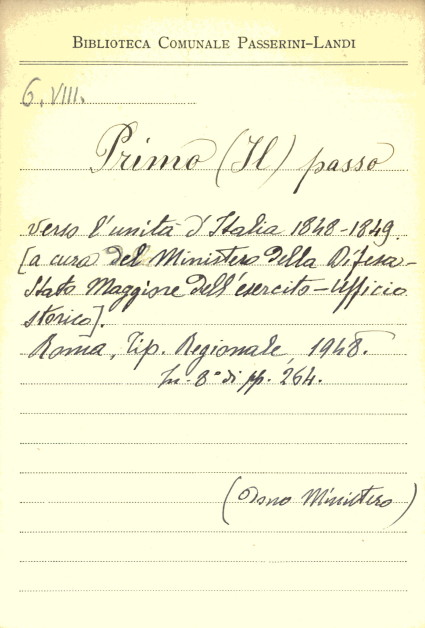 BIBLIOTECA COMUNALE PASSERINI-LANDI
6.VIII.
Primo (Il) passo
verso l'unità d'Italia 1848-1849.
[a cura del Ministero della Difesa-
Stato Maggiore dell'esercito-Ufficio
storico].
Roma, Tip. Regionale, 1948.
In-8° di pp. 264.
(Dono Ministero)